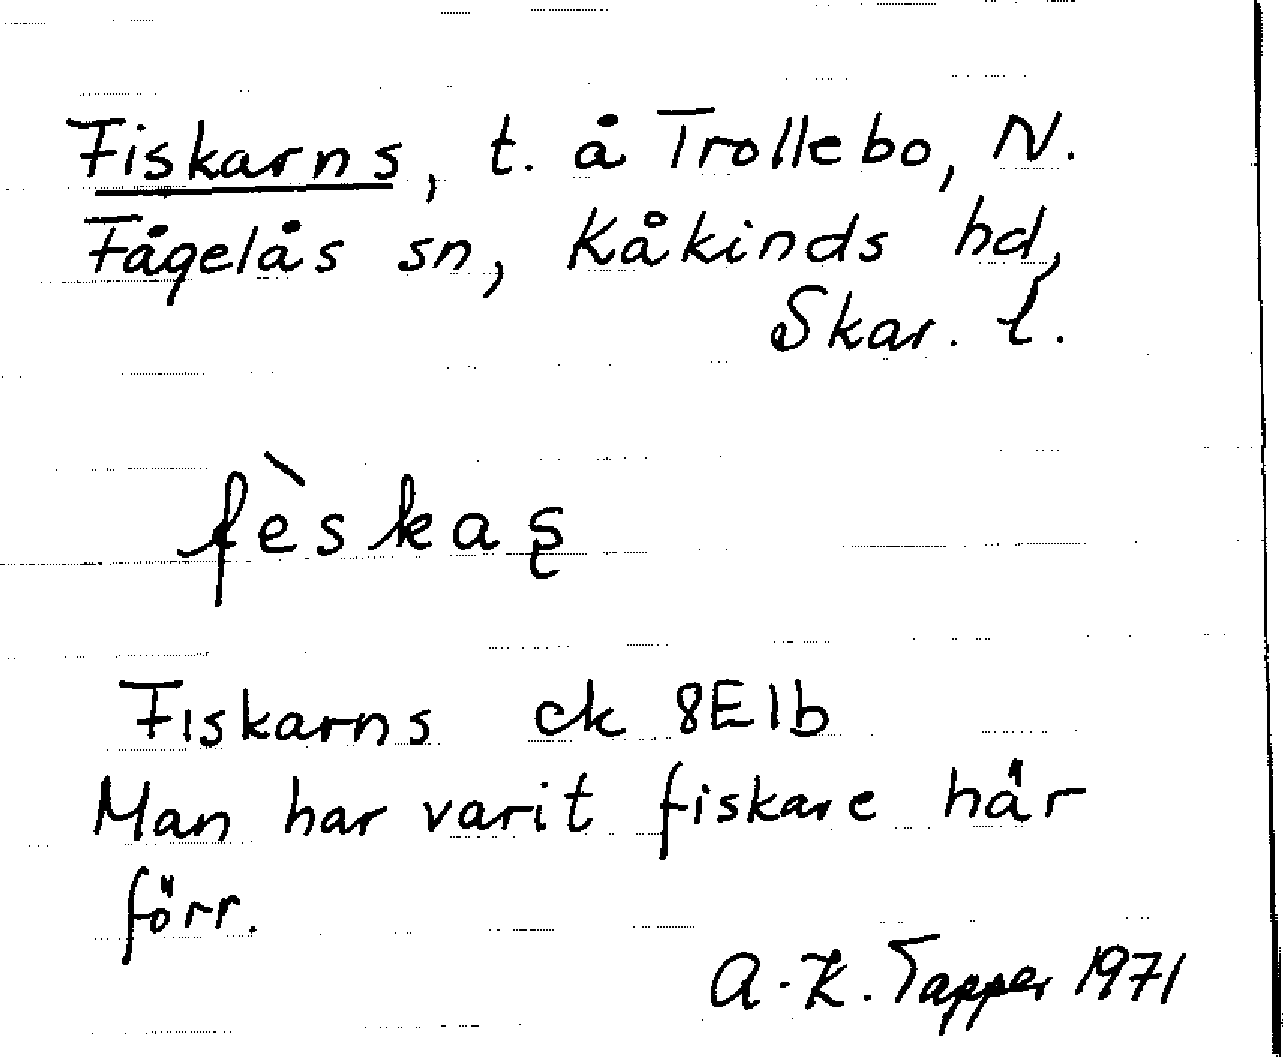 Fiskarns, t. å Trollebo, N.
Fågelås sn, Kåkinds hd,
Skar. l.
fèskaş
Fiskarns ek 8E1b
Man har varit fiskare här
förr.
A.-K. Tapper 1971